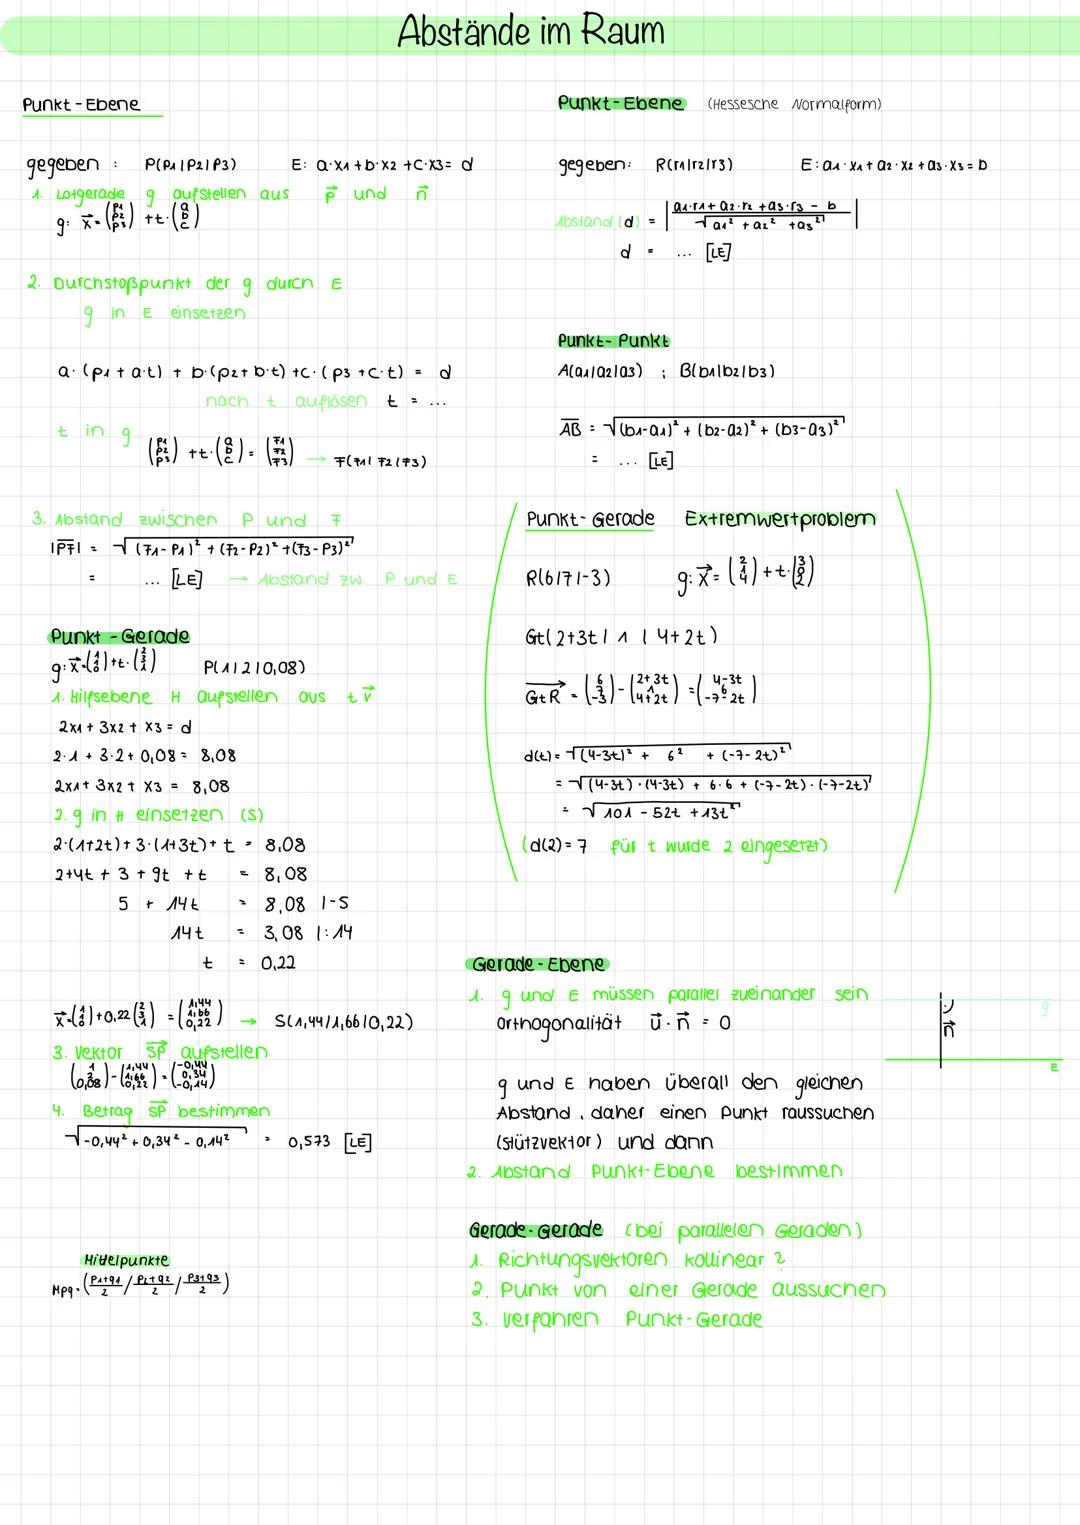 Abstände im Raum
Punkt - Ebene
gegeben : P(p1|p2|p3) E: a·x1 + b·x2 + c·x3 = d
1. Lotgerade g aufstellen aus p⃗ und n⃗
g: x⃗ = (p1 p2 p3) + t·(a b c)
2. Durchstoßpunkt der g durch E
g in E einsetzen
a·(p1 + a·t) + b·(p2 + b·t) + c·(p3 + c·t) = d
nach t auflösen t = ...
t in g
(p1 p2 p3) + t·(a b c) = (F1 F2 F3) → F(F1|F2|F3)
3. Abstand zwischen P und F
|PF| = √(F1 - P1)² + (F2 - P2)² + (F3 - P3)²
= ... [LE] → Abstand zw. P und E
Punkt - Gerade
g: x⃗ = (1 1 0) + t·(2 3 1) P(1|2|0,08)
1. Hilfsebene H aufstellen aus t v⃗
2x1 + 3x2 + x3 = d
2·1 + 3·2 + 0,08 = 8,08
2x1 + 3x2 + x3 = 8,08
2. g in H einsetzen (S)
2·(1+2t) + 3·(1+3t) + t = 8,08
2+4t + 3 + 9t + t = 8,08
5 + 14t = 8,08 |-5
14t = 3,08 |:14
t = 0,22
x⃗ = (1 1 0) + 0,22 (2 3 1) = (1,44 1,66 0,22) → S(1,44/1,66|0,22)
3. Vektor SP⃗ aufstellen
(1 2 0,08) - (1,44 1,66 0,22) = (-0,44 0,34 -0,14)
4. Betrag SP⃗ bestimmen
√-0,44² + 0,34² - 0,14² = 0,573 [LE]
Mittelpunkte
Mpq = (p1+q1/2 / p2+q2/2 / p3+q3/2)
Punkt - Ebene (Hessesche Normalform)
gegeben: R(r1|r2|r3) E: a1·x1 + a2·x2 + a3·x3 = b
Abstand (d) = | a1·r1 + a2·r2 + a3·r3 - b / √a1² + a2² + a3² |
d = ... [LE]
Punkt - Punkt
A(a1|a2|a3) ; B(b1|b2|b3)
AB = √(b1-a1)² + (b2-a2)² + (b3-a3)²
= ... [LE]
Punkt - Gerade Extremwertproblem
R(6|7|-3) g: x⃗ = (2 1 4) + t·(3 0 2)
Gt(2+3t | 1 | 4+2t)
GtR⃗ = (6 7 -3) - (2+3t 1 4+2t) = (4-3t 6 -7-2t)
d(t) = √(4-3t)² + 6² + (-7-2t)²
= √(4-3t)·(4-3t) + 6·6 + (-7-2t)·(-7-2t)
= √101 - 52t + 13t²
(d(2) = 7 für t wurde 2 eingesetzt)
Gerade - Ebene
1. g und E müssen parallel zueinander sein
Orthogonalität u⃗ · n⃗ = 0
g
n⃗
E
g und E haben überall den gleichen
Abstand, daher einen Punkt raussuchen
(Stützvektor) und dann
2. Abstand Punkt-Ebene bestimmen
Gerade - Gerade (bei parallelen Geraden)
1. Richtungsvektoren kollinear ?
2. Punkt von einer Gerade aussuchen
3. Verfahren Punkt-Gerade